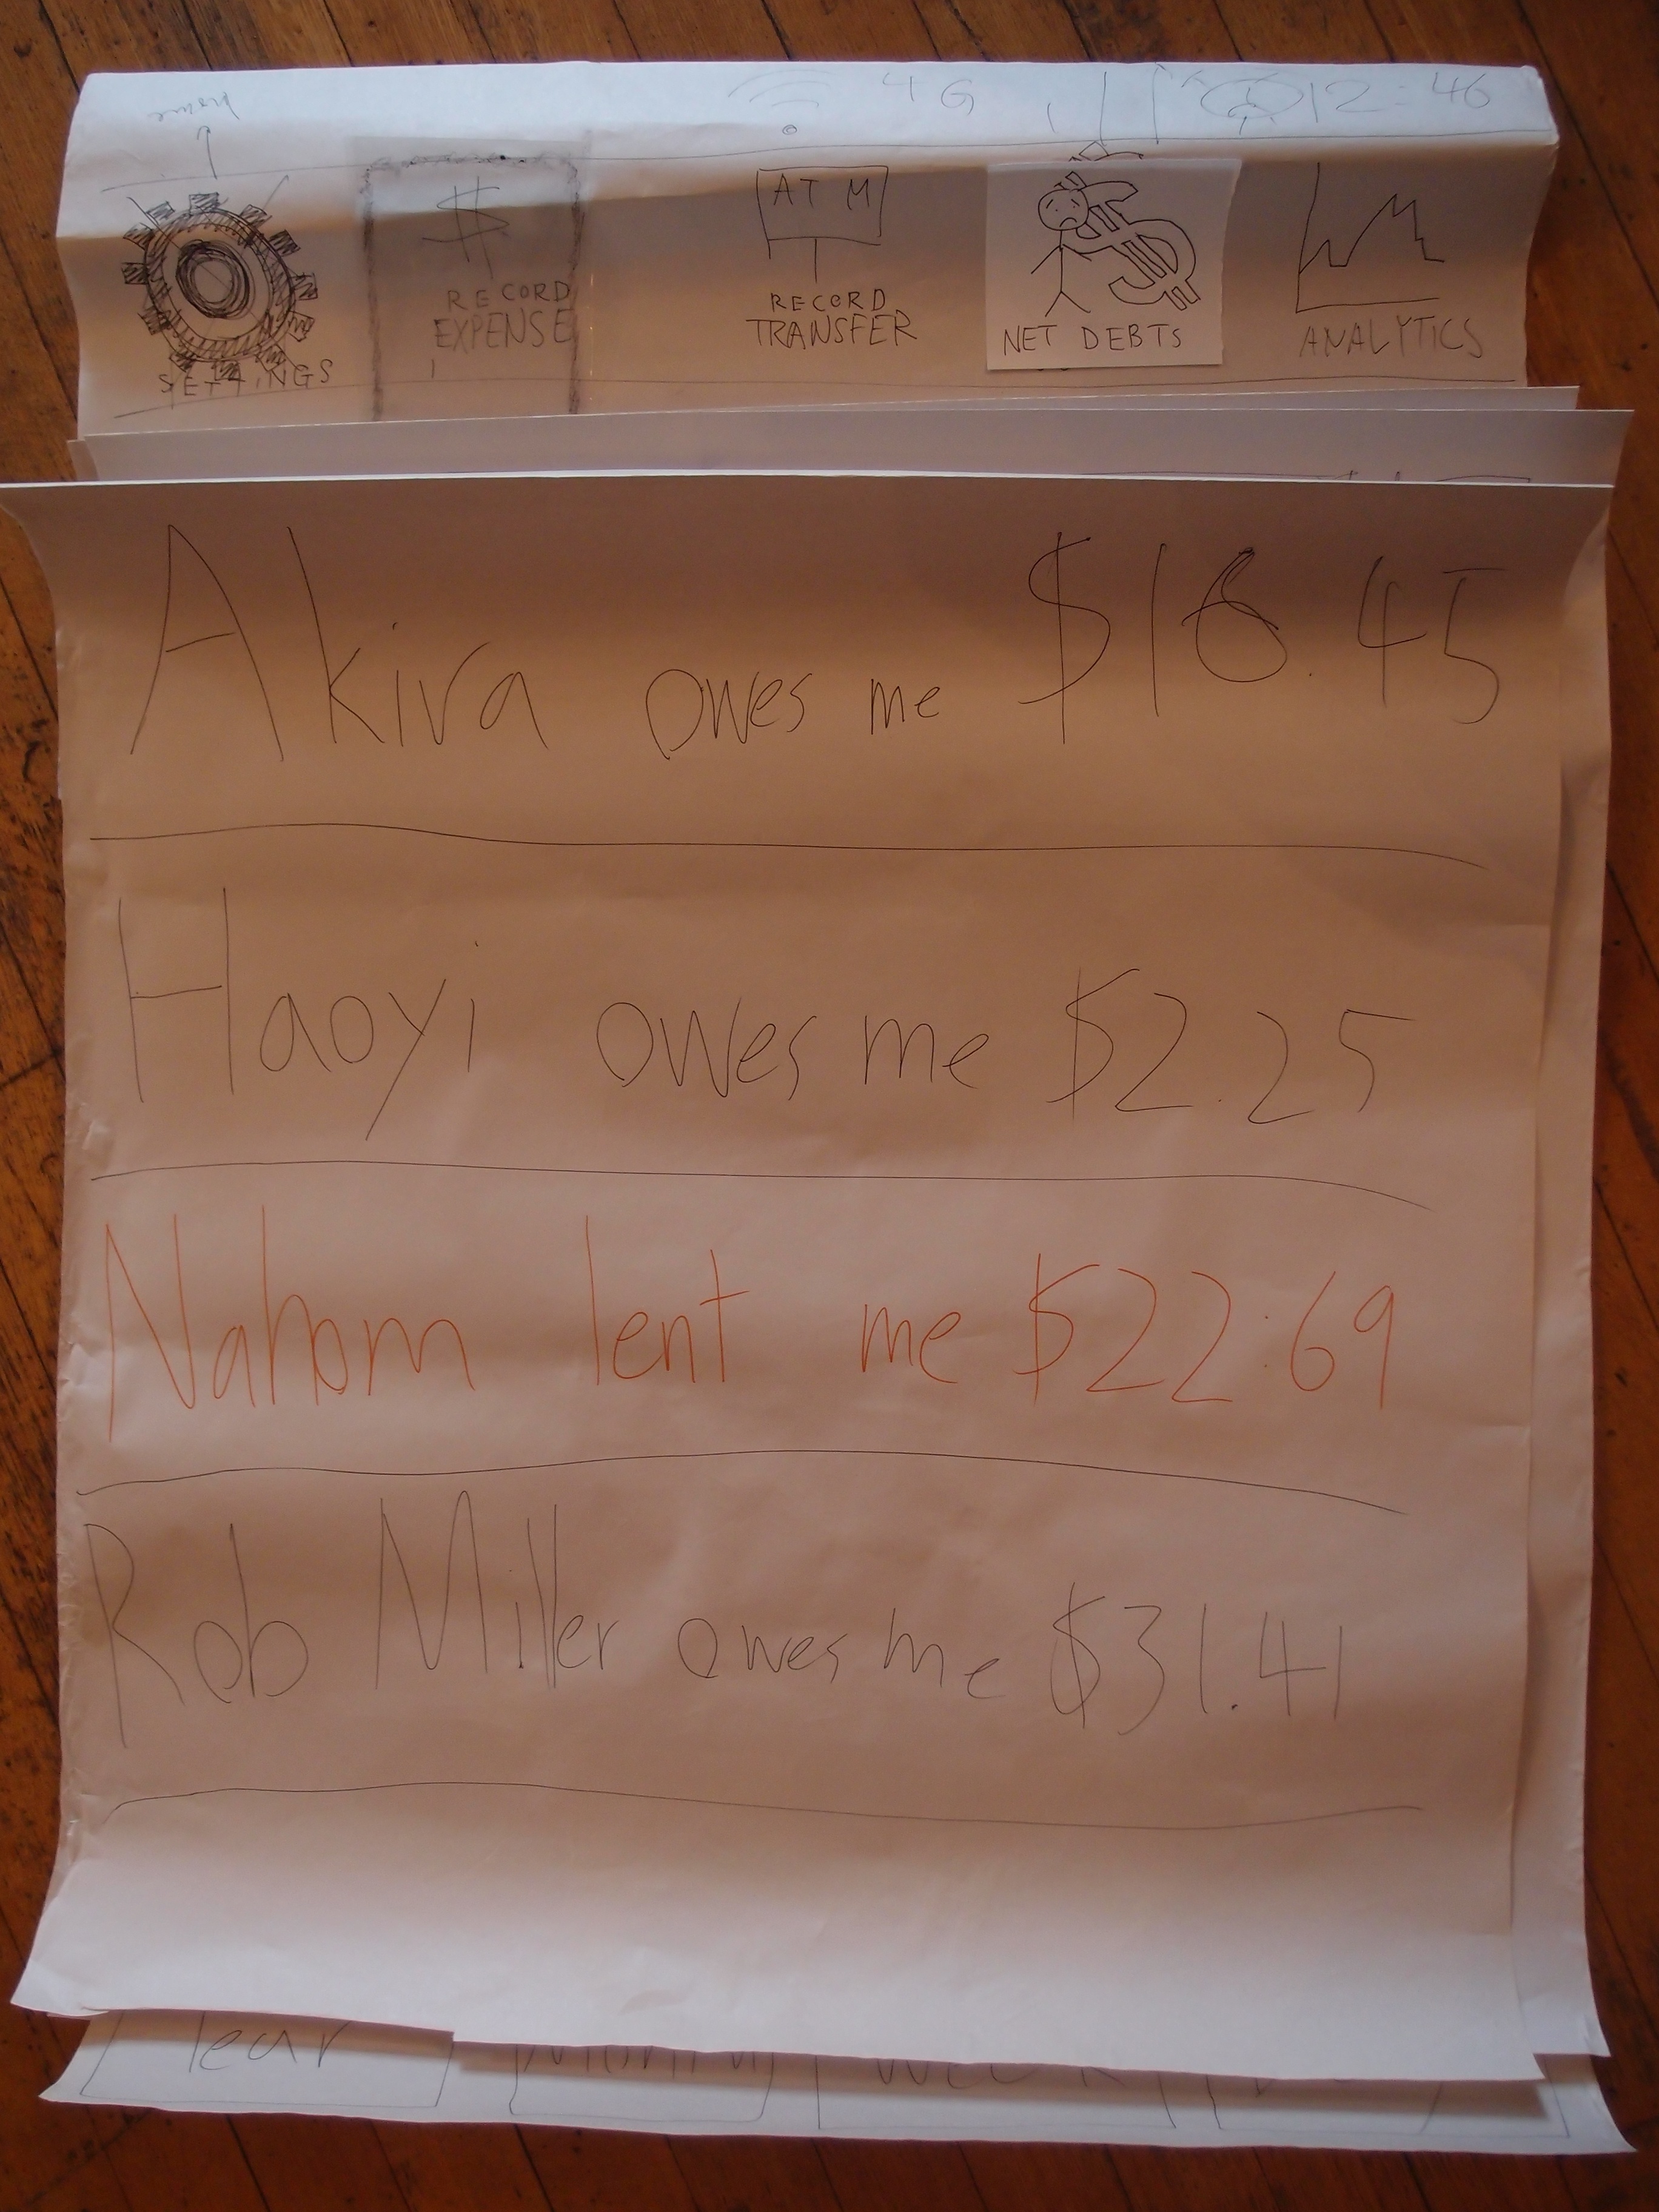 home
4G 12:46
ATM
$
SETTINGS
RECORD EXPENSE
RECORD TRANSFER
NET DEBTS
ANALYTICS
Akira owes me $16.45
Haoyi owes me $2.25
Nahom lent me $22.69
Rob Miller owes me $31.41
Year Month Week